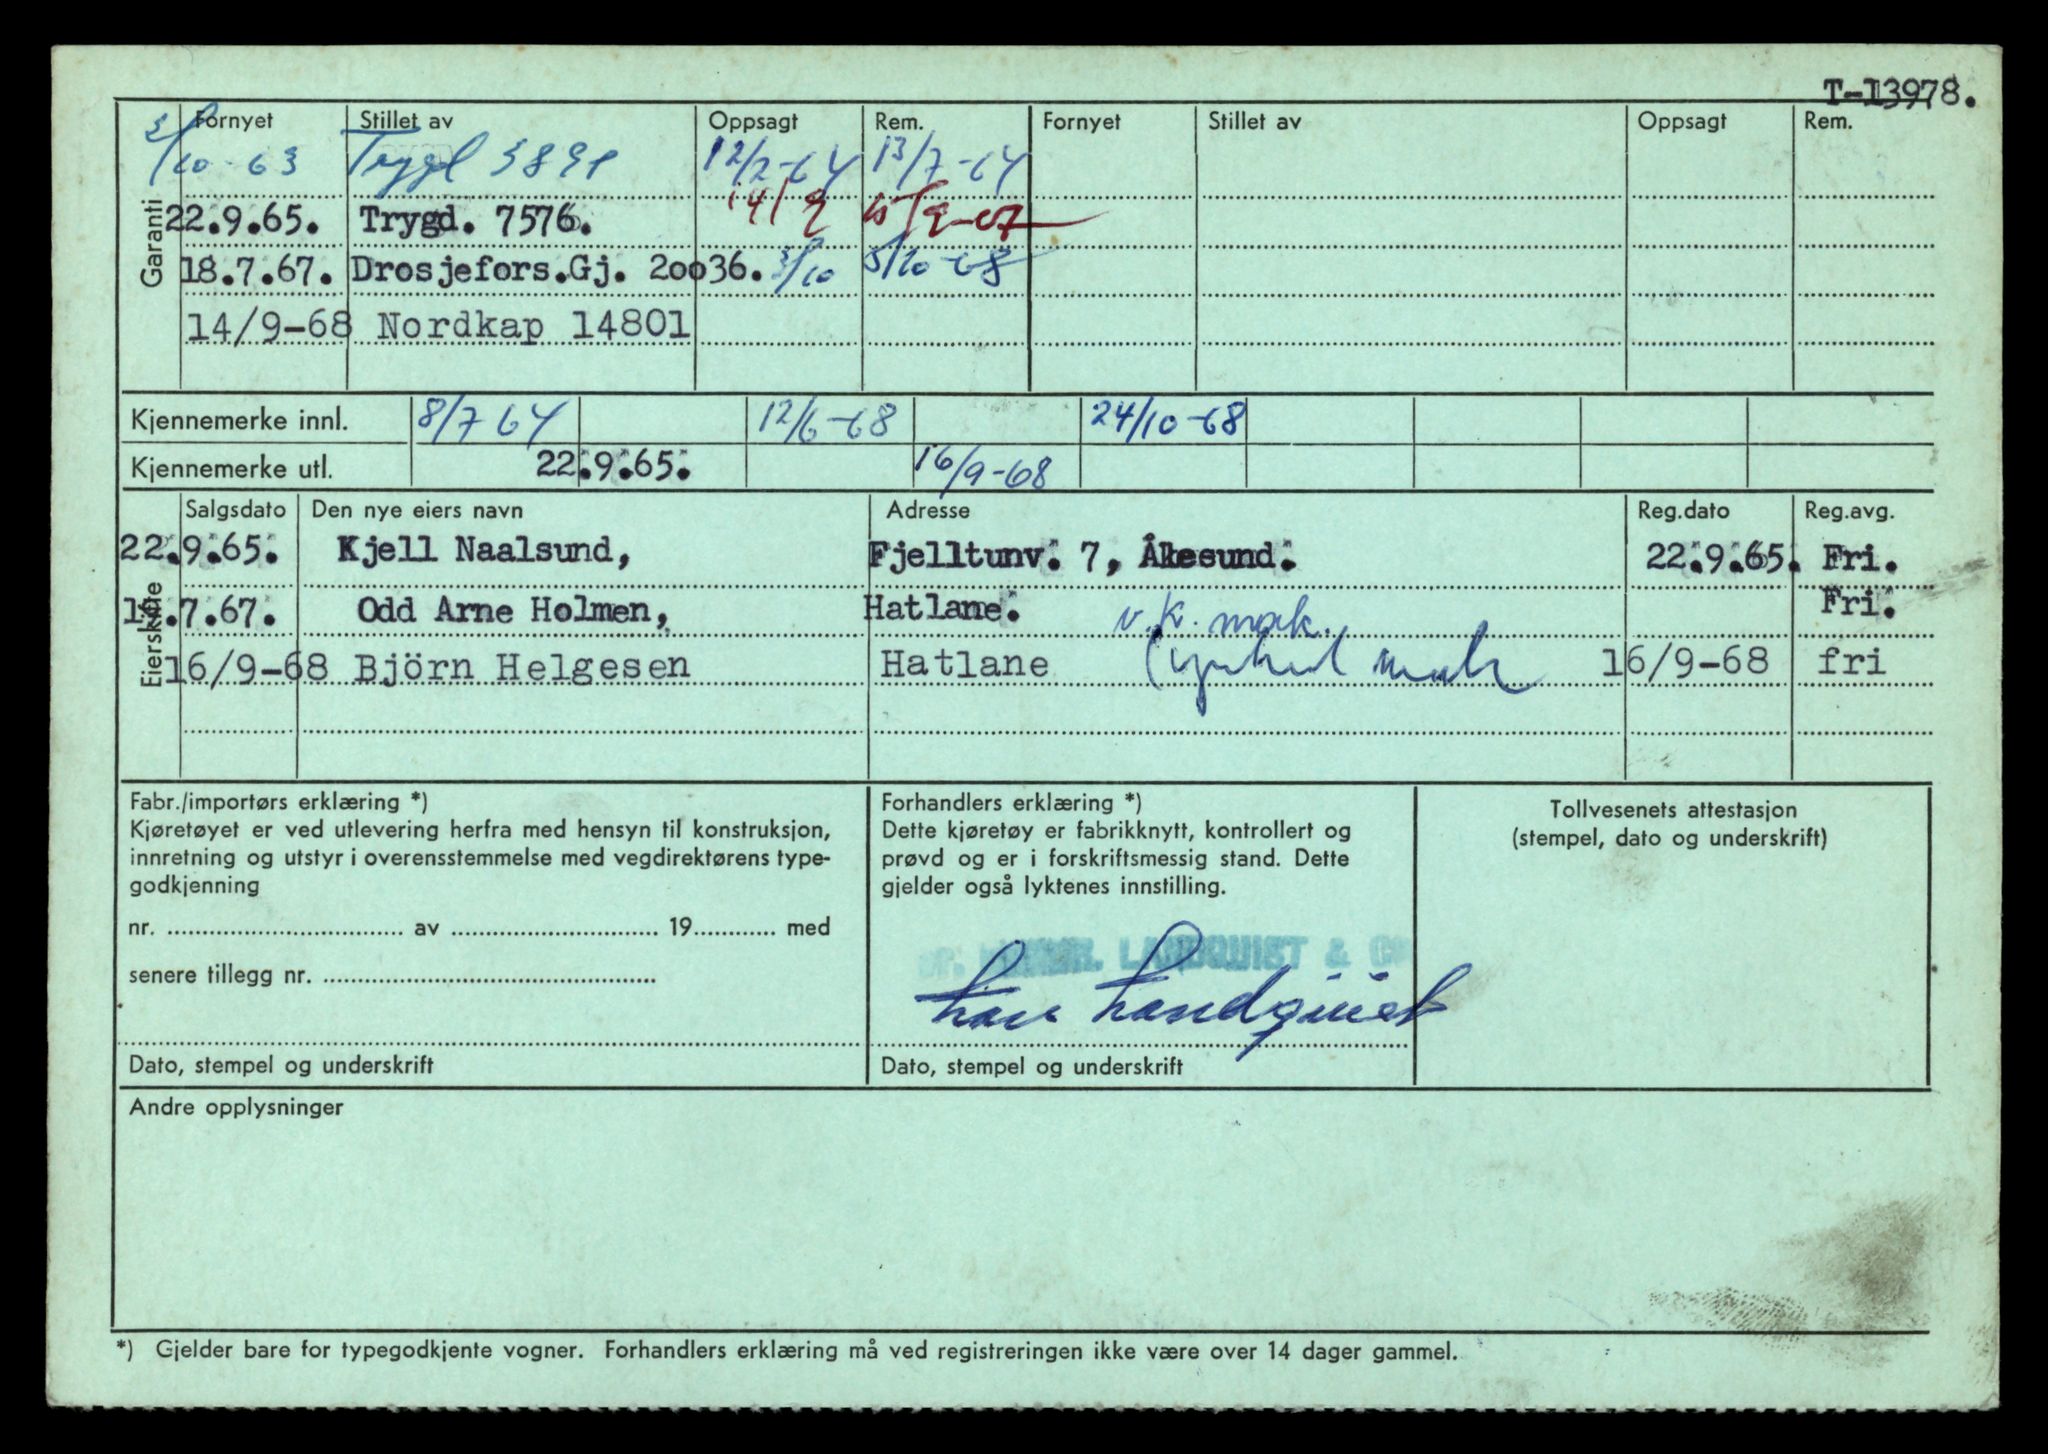 T-13978.
Garanti
Fornyet Stillet av Oppsagt Rem. Fornyet Stillet av Oppsagt Rem.
3/10-63 Trygd 12/2-64 13/7-64
22.9.65. Trygd. 7576. 14/9
18.7.67. Drosjefors.Gj. 20036. 3/10 5/10-68
14/9-68 Nordkap 14801
Kjennemerke innl. 8/7 64 12/6-68 24/10-68
Kjennemerke utl. 22.9.65. 16/9-68
Eierskifte
Salgsdato Den nye eiers navn Adresse Reg.dato Reg.avg.
22.9.65. Kjell Naalsund, Fjelltunv. 7, Ålesund. 22.9.65. Fri.
.7.67. Odd Arne Holmen, Hatlane. v.k. mak. Fri.
16/9-68 Björn Helgesen Hatlane 16/9-68 fri
Fabr./importørs erklæring *)
Kjøretøyet er ved utlevering herfra med hensyn til konstruksjon,
innretning og utstyr i overensstemmelse med vegdirektørens type-
godkjenning
nr. .......... av .......... 19.......... med
senere tillegg nr. ..........
Dato, stempel og underskrift
Forhandlers erklæring *)
Dette kjøretøy er fabrikknytt, kontrollert og
prøvd og er i forskriftsmessig stand. Dette
gjelder også lyktenes innstilling.
LANDQUIST & C
Landquist
Dato, stempel og underskrift
Tollvesenets attestasjon
(stempel, dato og underskrift)
Andre opplysninger
*) Gjelder bare for typegodkjente vogner. Forhandlers erklæring må ved registreringen ikke være over 14 dager gammel.